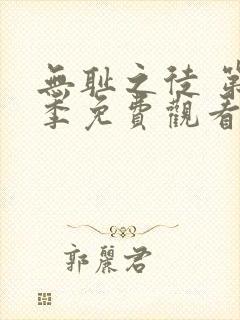 無耻之徒 第
季免費觀看
郭麗君